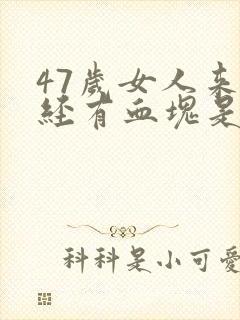 47岁女人来
经有血塊是
科科是小可愛